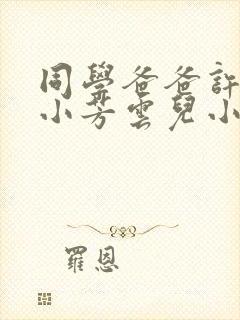 同學爸爸許
小芳雲兒小
羅恩